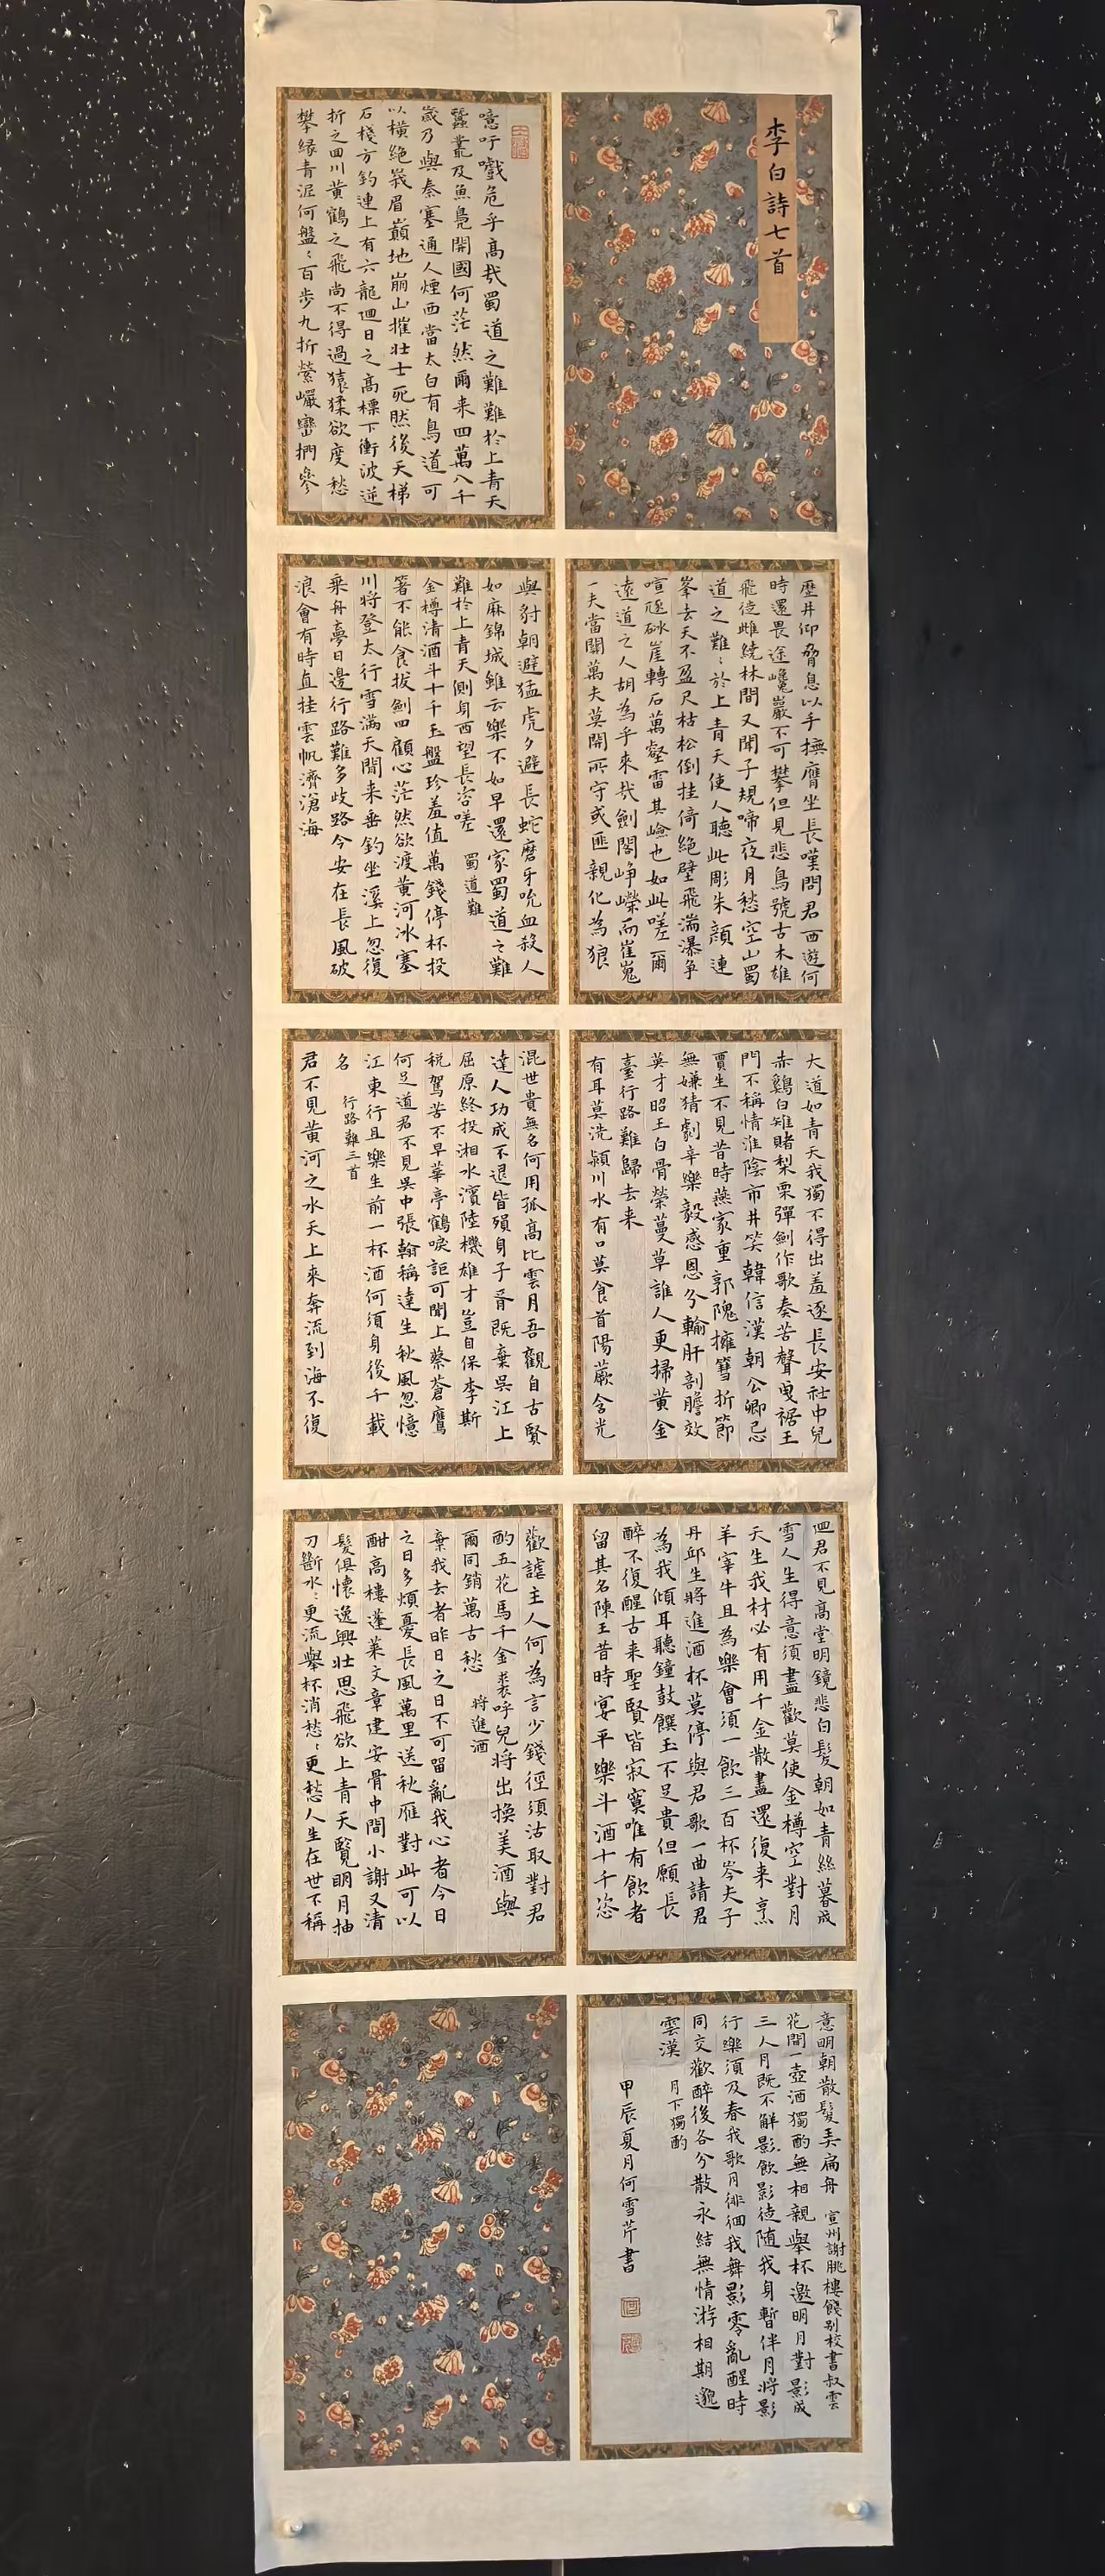 李白詩七首
噫吁戲危乎高哉蜀道之難難於上青天
蠶叢及魚鳧開國何茫然爾来四萬八千
歲乃與秦塞通人煙西當太白有鳥道可
以橫絕峩眉巔地崩山摧壮士死然後天梯
石棧方鈎連上有六龍迴日之高標下衝波逆
折之回川黄鶴之飛尚不得過猿猱欲度愁
攀缘青泥何盤〻百步九折縈巗巒捫參
歷井仰脅息以手撫膺坐長嘆問君西遊何
時還畏途巉巖不可攀但見悲鳥號古木雄
飛從雌繞林間又聞子規啼夜月愁空山蜀
道之難〻於上青天使人聽此彫朱顔連
峯去天不盈尺枯松倒挂倚絶壁飛湍瀑爭
喧豗砯崖轉石萬壑雷其嶮也如此嗟爾
遠道之人胡為乎來哉劍閣崢嶸而崔嵬
一夫當關萬夫莫開所守或匪親化為狼
與豺朝避猛虎夕避長蛇磨牙吮血殺人
如麻錦城雖云樂不如早還家蜀道之難
難於上青天側身西望長咨嗟 蜀道難
金樽清酒斗十千玉盤珍羞值萬錢停杯投
箸不能食拔劍四顧心茫然欲渡黄河冰塞
川將登太行雪滿天閒来垂釣坐溪上忽復
乘舟夢日邊行路難多歧路今安在長風破
浪會有時直挂雲帆濟滄海
大道如青天我獨不得出羞逐長安社中兒
赤鷄白雉賭梨栗彈劍作歌奏苦聲曳裾王
門不稱情淮陰市井笑韓信漢朝公卿忌
賈生不見昔時燕家重郭隗擁篲折節
無嫌猜劇辛樂毅感恩分輸肝剖膽效
英才昭王白骨縈蔓草誰人更掃黄金
臺行路難歸去来
有耳莫洗潁川水有口莫食首陽蕨含光
混世貴無名何用孤高比雲月吾觀自古賢
達人功成不退皆殞身子胥既棄吳江上
屈原終投湘水濱陸機雄才豈自保李斯
税駕苦不早華亭鶴唳詎可聞上蔡蒼鷹
何足道君不見吳中張翰稱達生秋風忽憶
江東行且樂生前一杯酒何須身後千載
名 行路難三首
君不見黄河之水天上來奔流到海不復
迴君不見高堂明鏡悲白髮朝如青絲暮成
雪人生得意須盡歡莫使金樽空對月
天生我材必有用千金散盡還復来烹
羊宰牛且為樂會須一飲三百杯岑夫子
丹邱生將進酒杯莫停與君歌一曲請君
為我傾耳聽鐘鼓饌玉不足貴但願長
醉不復醒古来聖賢皆寂寞唯有飲者
留其名陳王昔時宴平樂斗酒十千恣
歡謔主人何為言少錢徑須沽取對君
酌五花馬千金裘呼兒將出換美酒與
爾同銷萬古愁 將進酒
棄我去者昨日之日不可留亂我心者今日
之日多煩憂長風萬里送秋雁對此可以
酣高樓蓬萊文章建安骨中間小謝又清
髮俱懷逸興壮思飛欲上青天覽明月抽
刀斷水〻更流舉杯消愁〻更愁人生在世不稱
意明朝散髮弄扁舟 宣州謝朓樓餞别校書叔雲
花間一壺酒獨酌無相親舉杯邀明月對影成
三人月既不解飲影徒隨我身暫伴月將影
行樂須及春我歌月徘徊我舞影零亂醒時
同交歡醉後各分散永結無情游相期邈
雲漢 月下獨酌
甲辰夏月何雪芹書